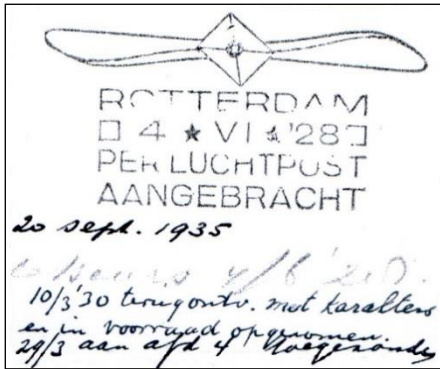 ROTTERDAM
4 ★ VI ★ '28
PER LUCHTPOST
AANGEBRACHT
20 sept. 1935
4/6 '28.
10/3 '30 terugontv. met karakters
en in voorraad opgenomen.
29/3 aan afd 4 toegezonden